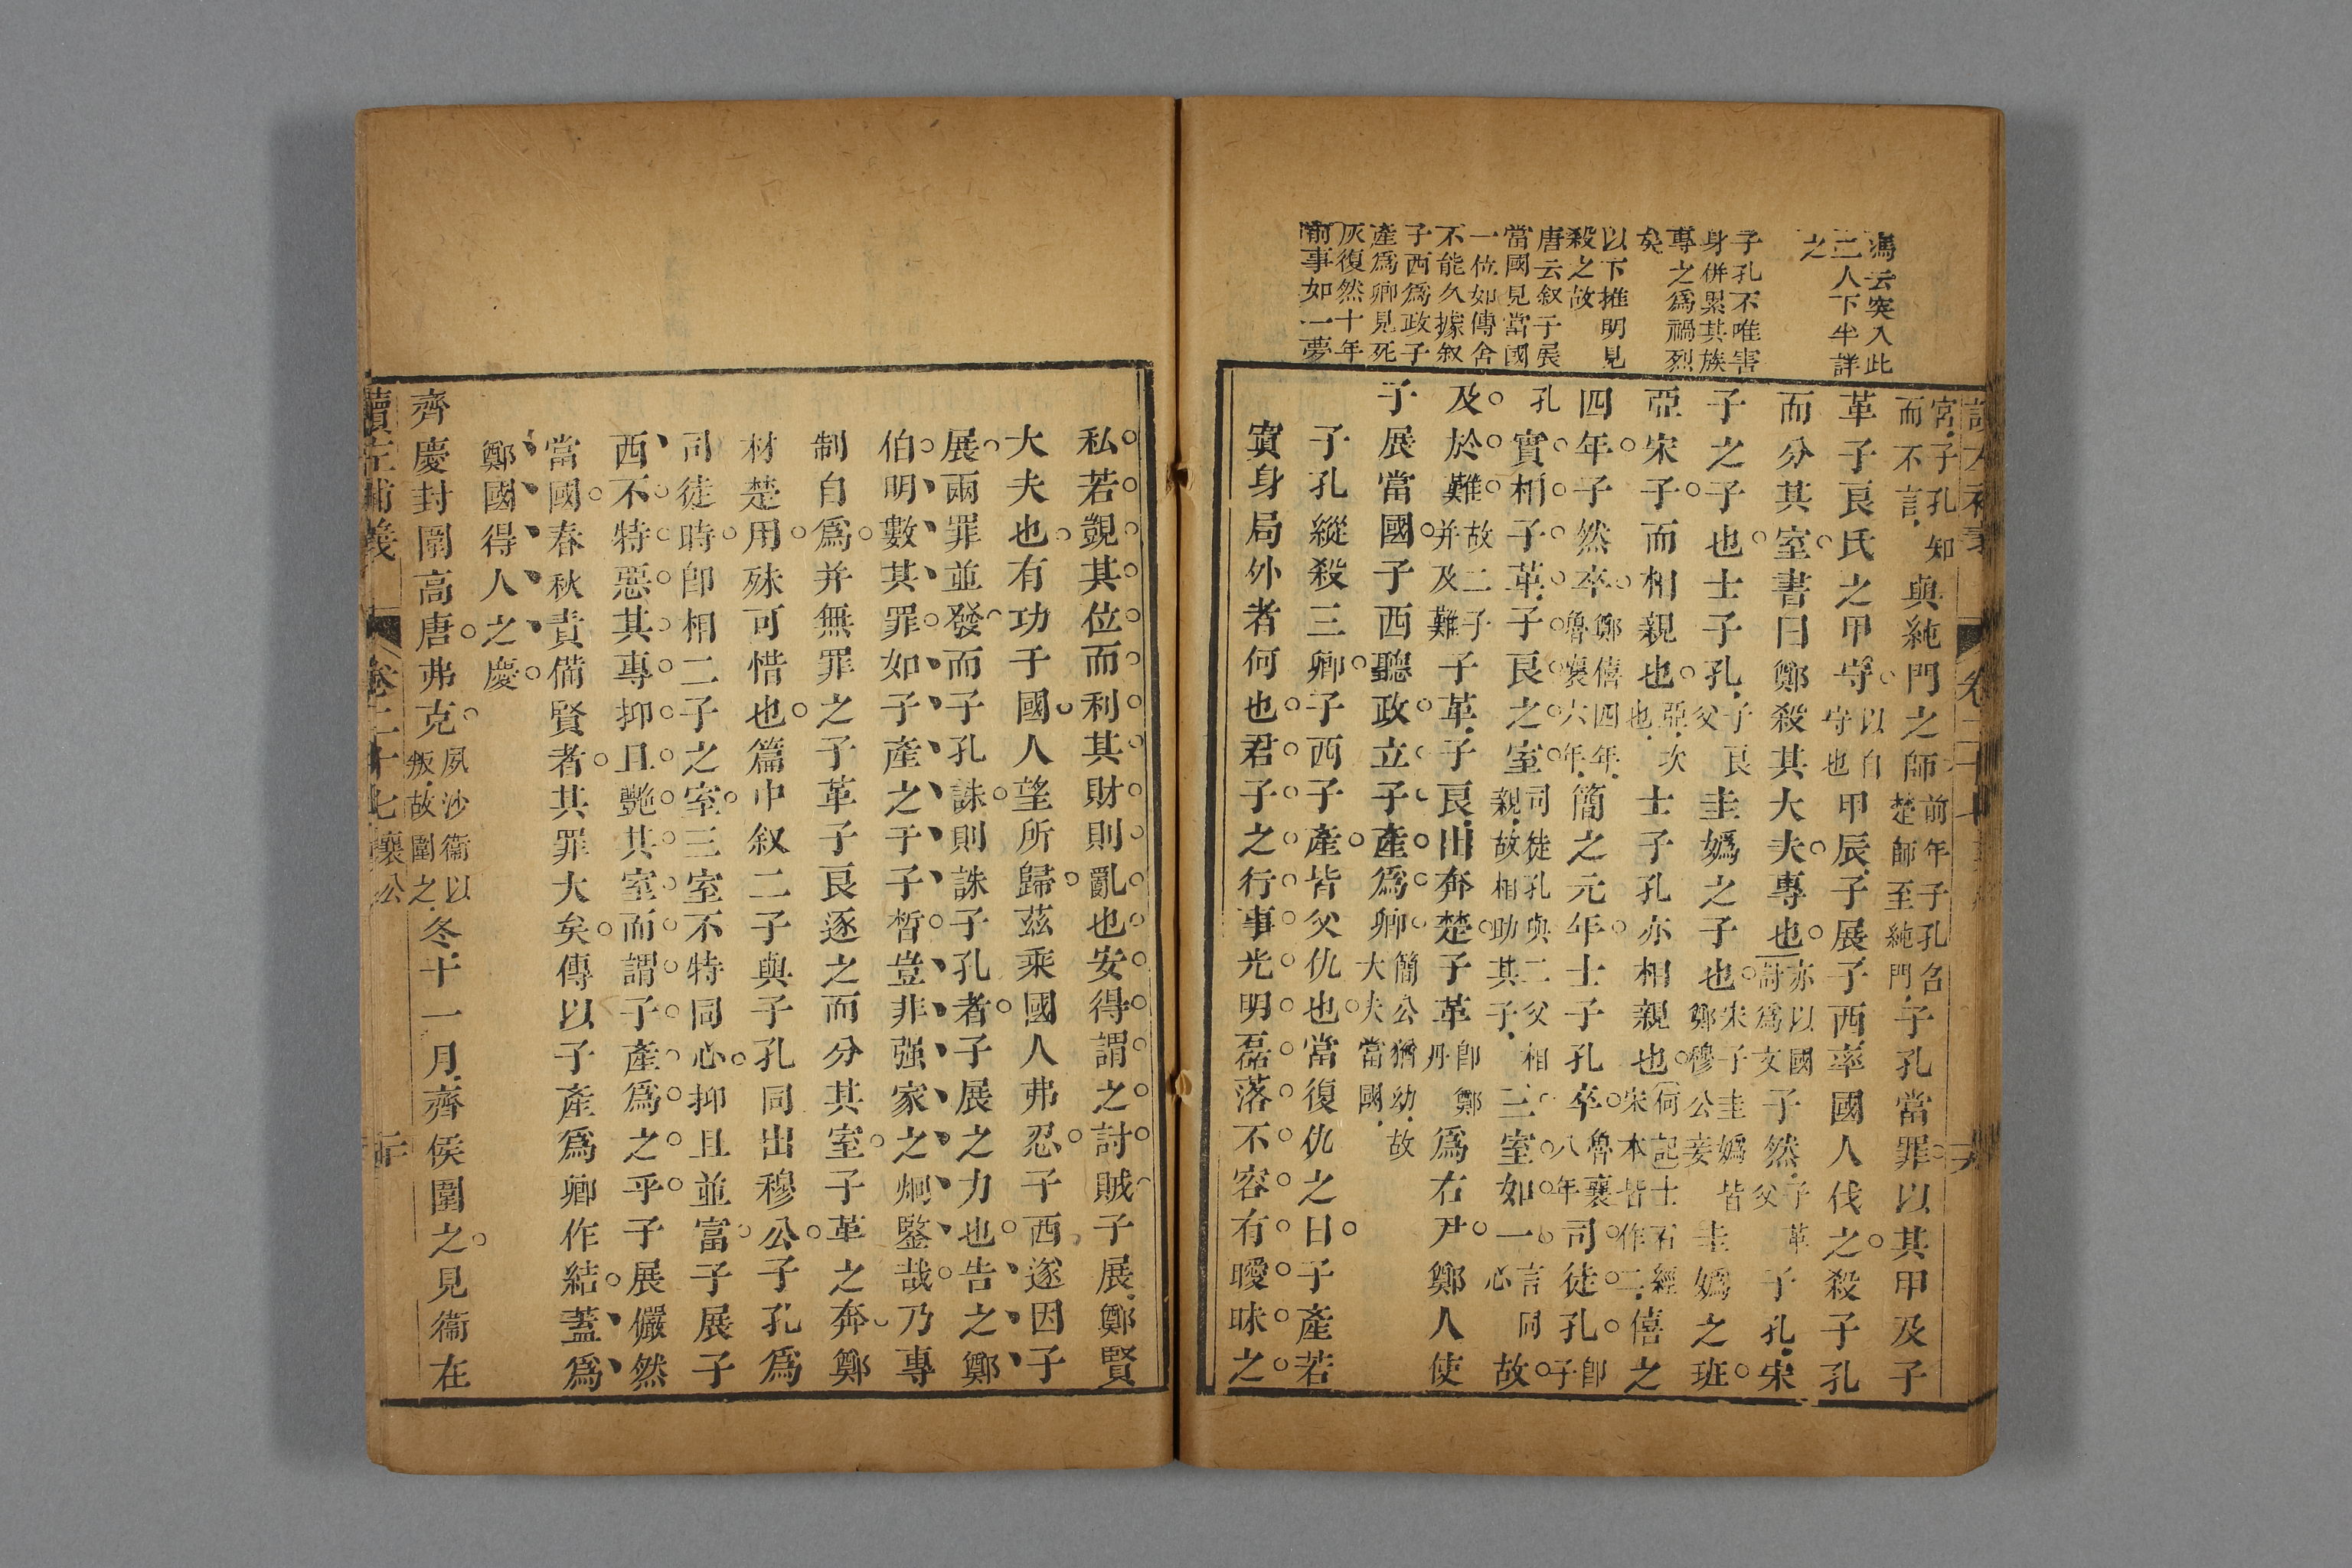 馮云突入此
二人下半詳
之
子孔不唯害
身併累其族
專之爲禍烈
矣
以下推明見
殺之故
唐云叙子展
當國見當國
一位如傳舍
不能久據叙
子西爲政子
產爲卿見死
灰復然十年
前事如一夢
宮子孔知而不言與純門之師前年子孔召楚師至純門子孔當罪以其甲及子
革子良氏之甲守以自守也甲辰子展子西率國人伐之殺子孔
而分其室書曰鄭殺其大夫專也亦以國討爲文子然子革父子孔宋
子之子也士子孔子良父圭嬀之子也宋子圭嬀皆鄭穆公妾圭嬀之班
亞宋子而相親也亞次也士子孔亦相親也僖之
四年子然卒鄭僖四年魯襄六年簡之元年士子孔卒魯襄八年司徒孔卽子
孔實相子革子良之室司徒孔與二父相親故相助其子三室如一言同心故
及於難故二子并及難子革子良出奔楚子革卽鄭丹爲右尹鄭人使
子展當國子西聽政立子產爲卿簡公猶幼故大夫當國
子孔縱殺三卿子西子產皆父仇也當復仇之日子產若
寘身局外者何也君子之行事光明磊落不容有曖昧之
私若覬其位而利其財則亂也安得謂之討賊子展鄭賢
大夫也有功于國人望所歸茲乘國人弗忍子西遂因子
展兩罪並發而子孔誅則誅子孔者子展之力也告之鄭
伯明數其罪如子產之于子晳豈非强家之炯鑒哉乃專
制自爲并無罪之子革子良逐之而分其室子革之奔鄭
材楚用殊可惜也篇中叙二子與子孔同出穆公子孔爲
司徒時卽相二子之室三室不特同心抑且並富子展子
西不特惡其專抑且艷其室而謂子產爲之乎子展儼然
當國春秋責備賢者其罪大矣傳以子產爲卿作結蓋爲
鄭國得人之慶
齊慶封圍高唐弗克夙沙衞以叛故圍之冬十一月齊侯圍之見衞在
讀左補義 卷二十七襄公